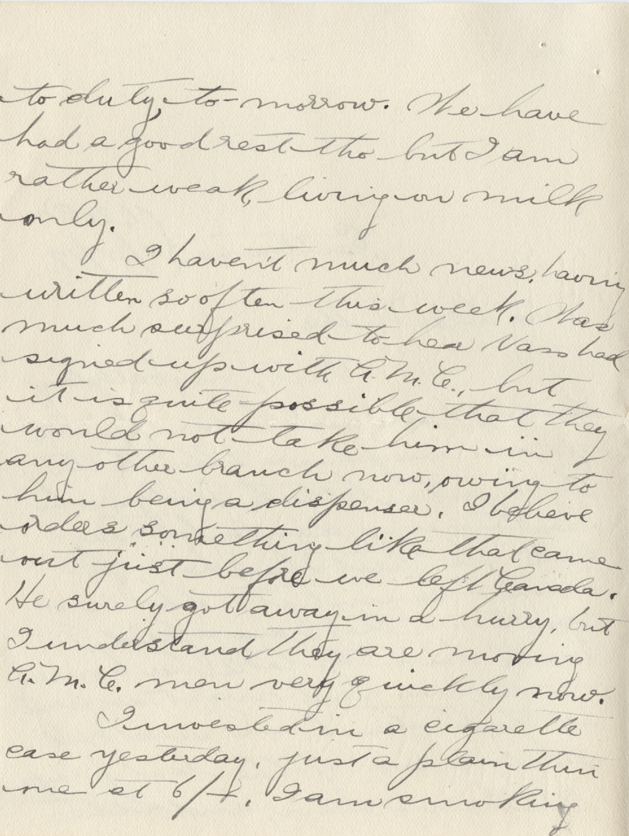 to duty to-morrow. We have
had a good rest tho but I am
rather weak, living on milk
only.
I haven't much news, having
written so often this week. Was
much surprised to hear Vass had
signed up with A.M.C., but
it is quite possible that they
would not take him in
any other branch now, owing to
him being a dispenser. I believe
orders something like that came
out just before we left Canada.
He surely got away in a hurry, but
I understand they are moving
A.M.C. men very quickly now.
I invested in a cigarette
case yesterday, just a plain thin
one at 6/-. I am smoking